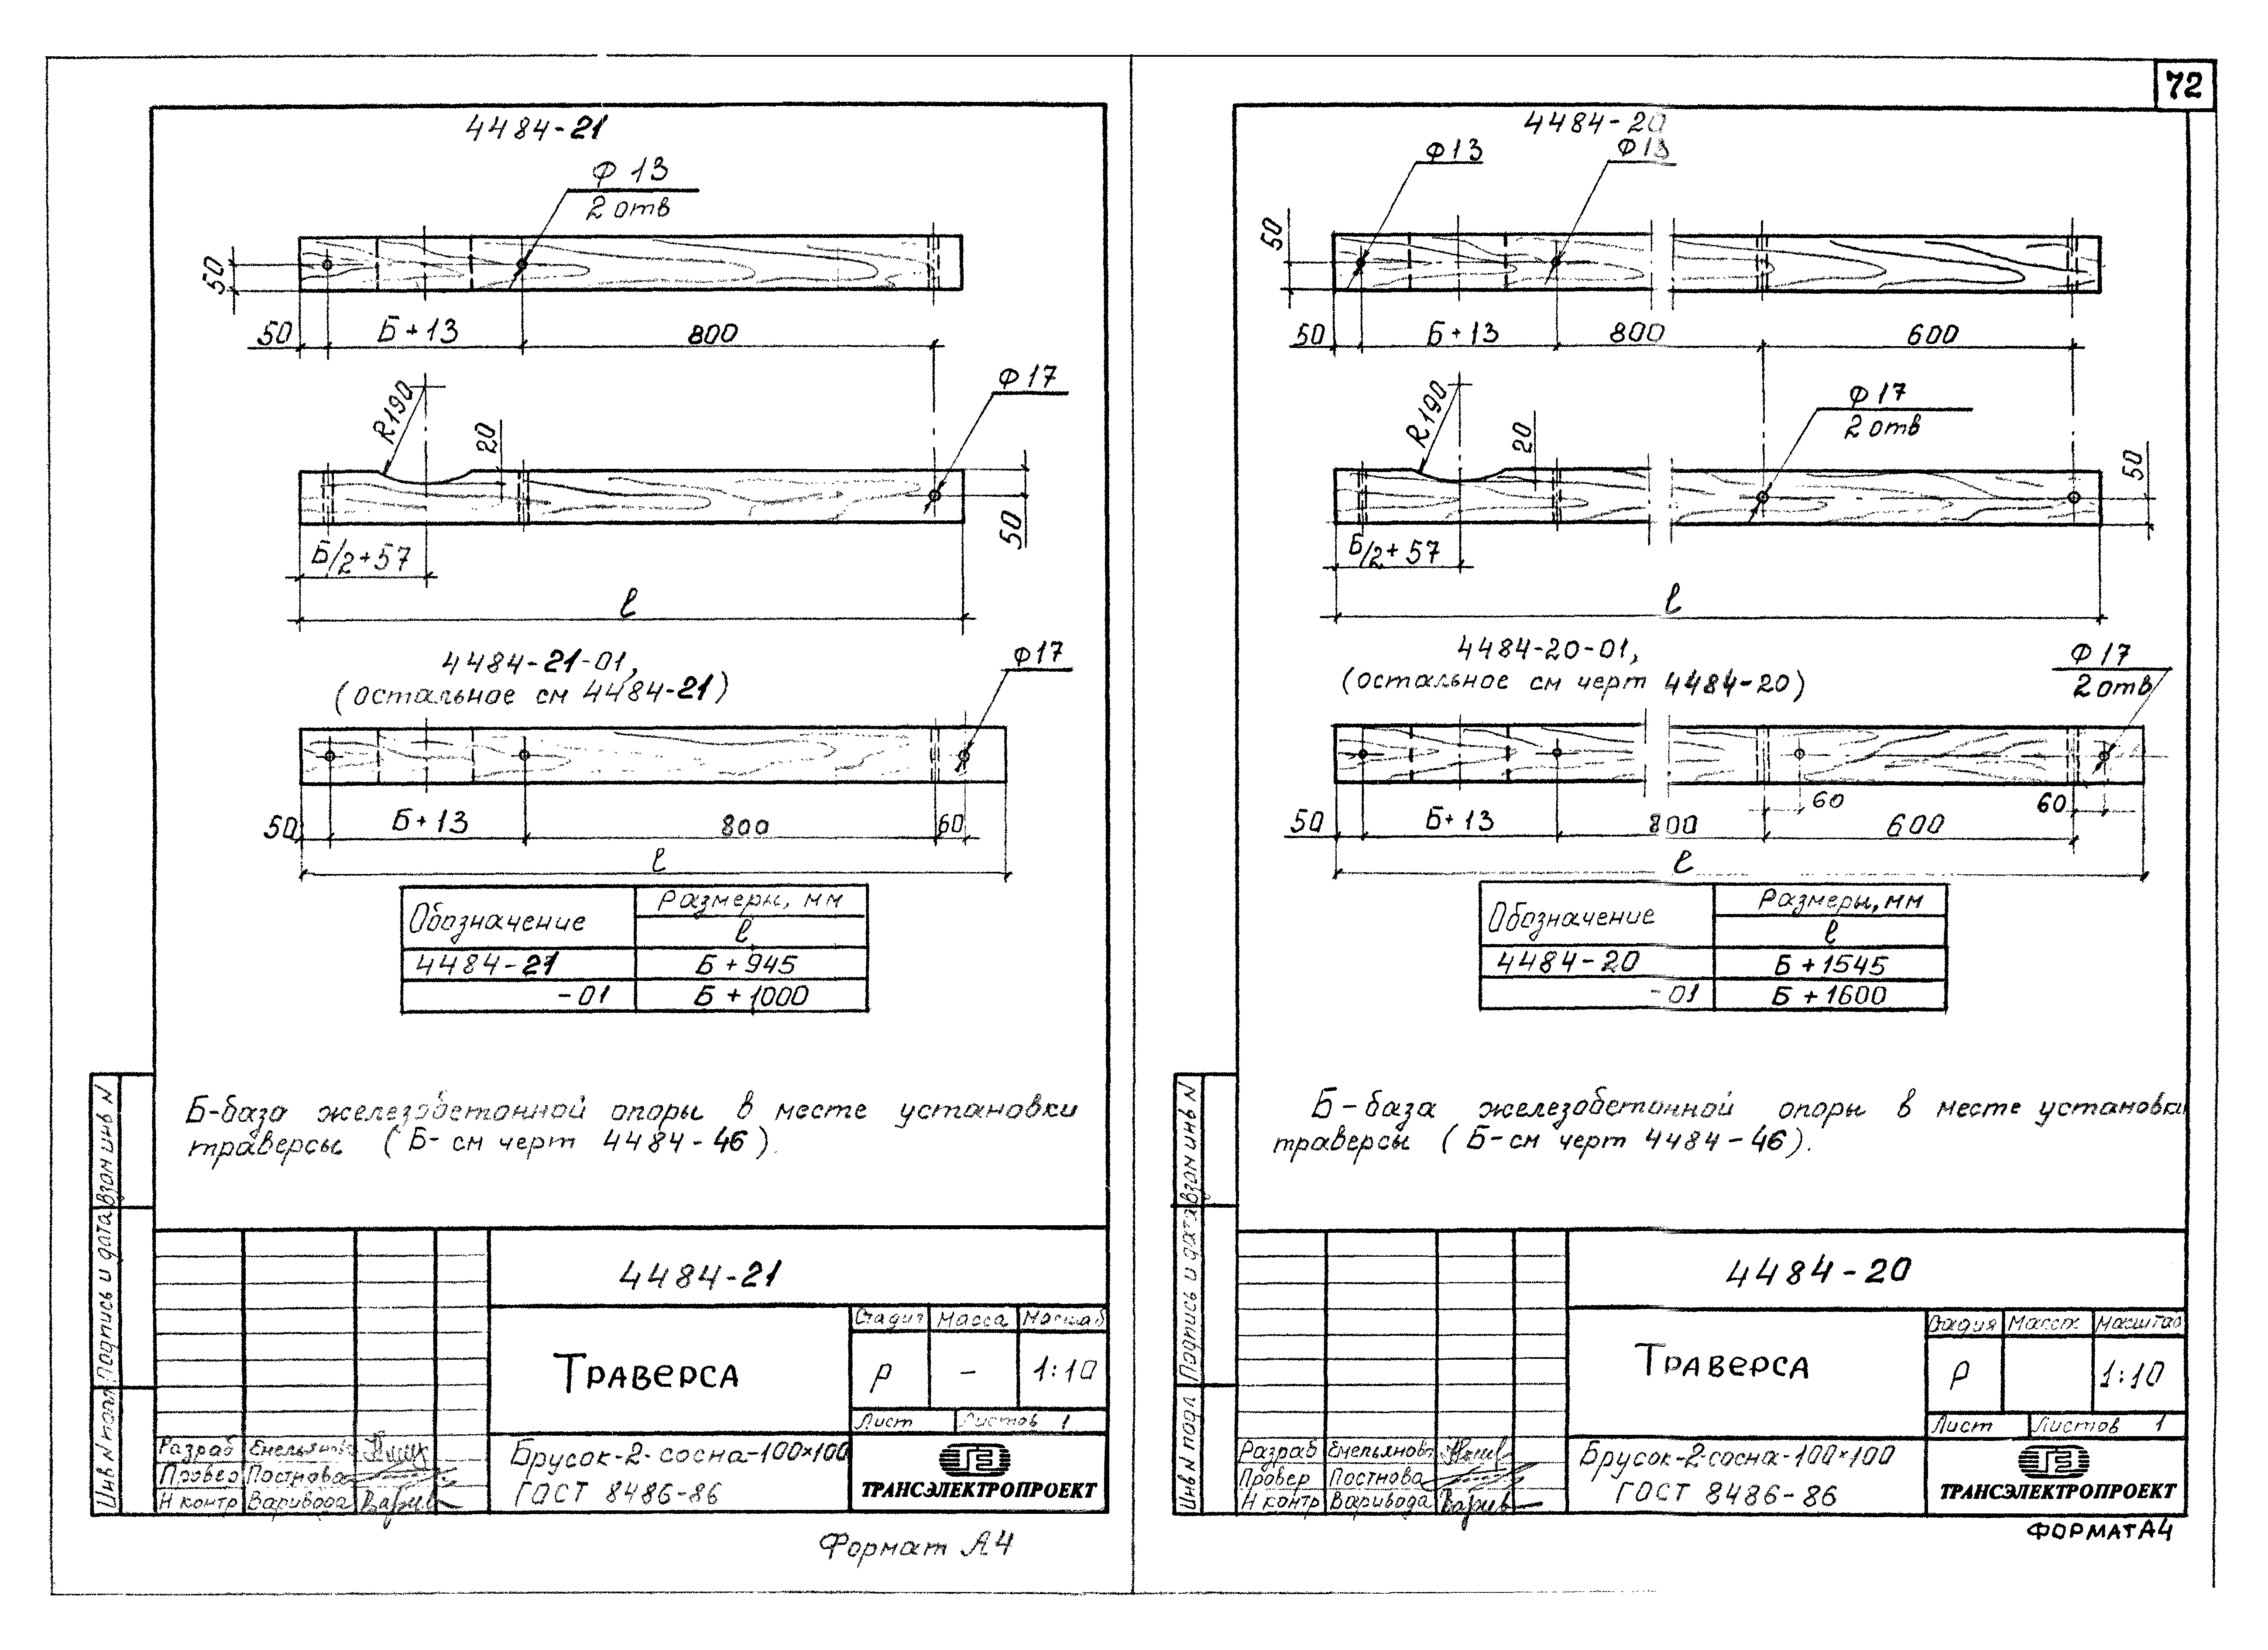 72
4484-21
Ф 13
2 отв
50
50
Б+13
800
R190
20
Ф17
50
Б/2+57
ℓ
4484-21-01,
(остальное см 4484-21)
Ф17
50
Б+13
800
60
ℓ
Обозначение
Размеры, мм
ℓ
4484-21
Б+945
-01
Б+1000
Б-база железобетонной опоры в месте установки
траверсы (Б- см черт 4484-46).
Инв N подл
Подпись и дата
Взам инв N
4484-21
Траверса
Стадия
Масса
Масштаб
Р
-
1:10
Лист
Листов 1
Разраб
Емельянова
Провер
Постнова
Н контр
Варивода
Брусок-2-сосна-100×100
ГОСТ 8486-86
ТРАНСЭЛЕКТРОПРОЕКТ
Формат А4
4484-20
Ф13
Ф13
50
50
Б+13
800
600
R190
20
Ф17
2 отв
50
Б/2+57
ℓ
4484-20-01,
(остальное см черт 4484-20)
Ф17
2 отв
60
60
50
Б+13
800
600
ℓ
Обозначение
Размеры, мм
ℓ
4484-20
Б+1545
-01
Б+1600
Б-база железобетонной опоры в месте установки
траверсы (Б-см черт 4484-46).
Инв N подл
Подпись и дата
Взам инв N
4484-20
Траверса
Стадия
Масса
Масштаб
Р
1:10
Лист
Листов 1
Разраб
Емельянова
Провер
Постнова
Н контр
Варивода
Брусок-2-сосна-100×100
ГОСТ 8486-86
ТРАНСЭЛЕКТРОПРОЕКТ
ФОРМАТ А4